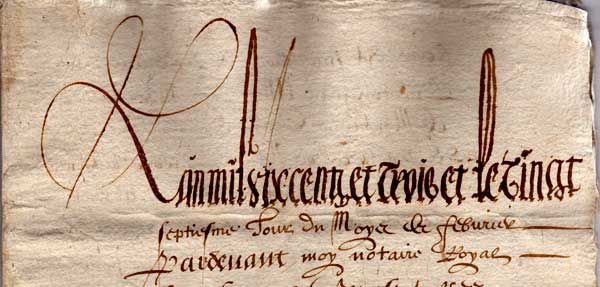 Lan mil six centz et trois et le vingt
septiesme Jour du Moys de feburier
Pardevant moy notaire Royal